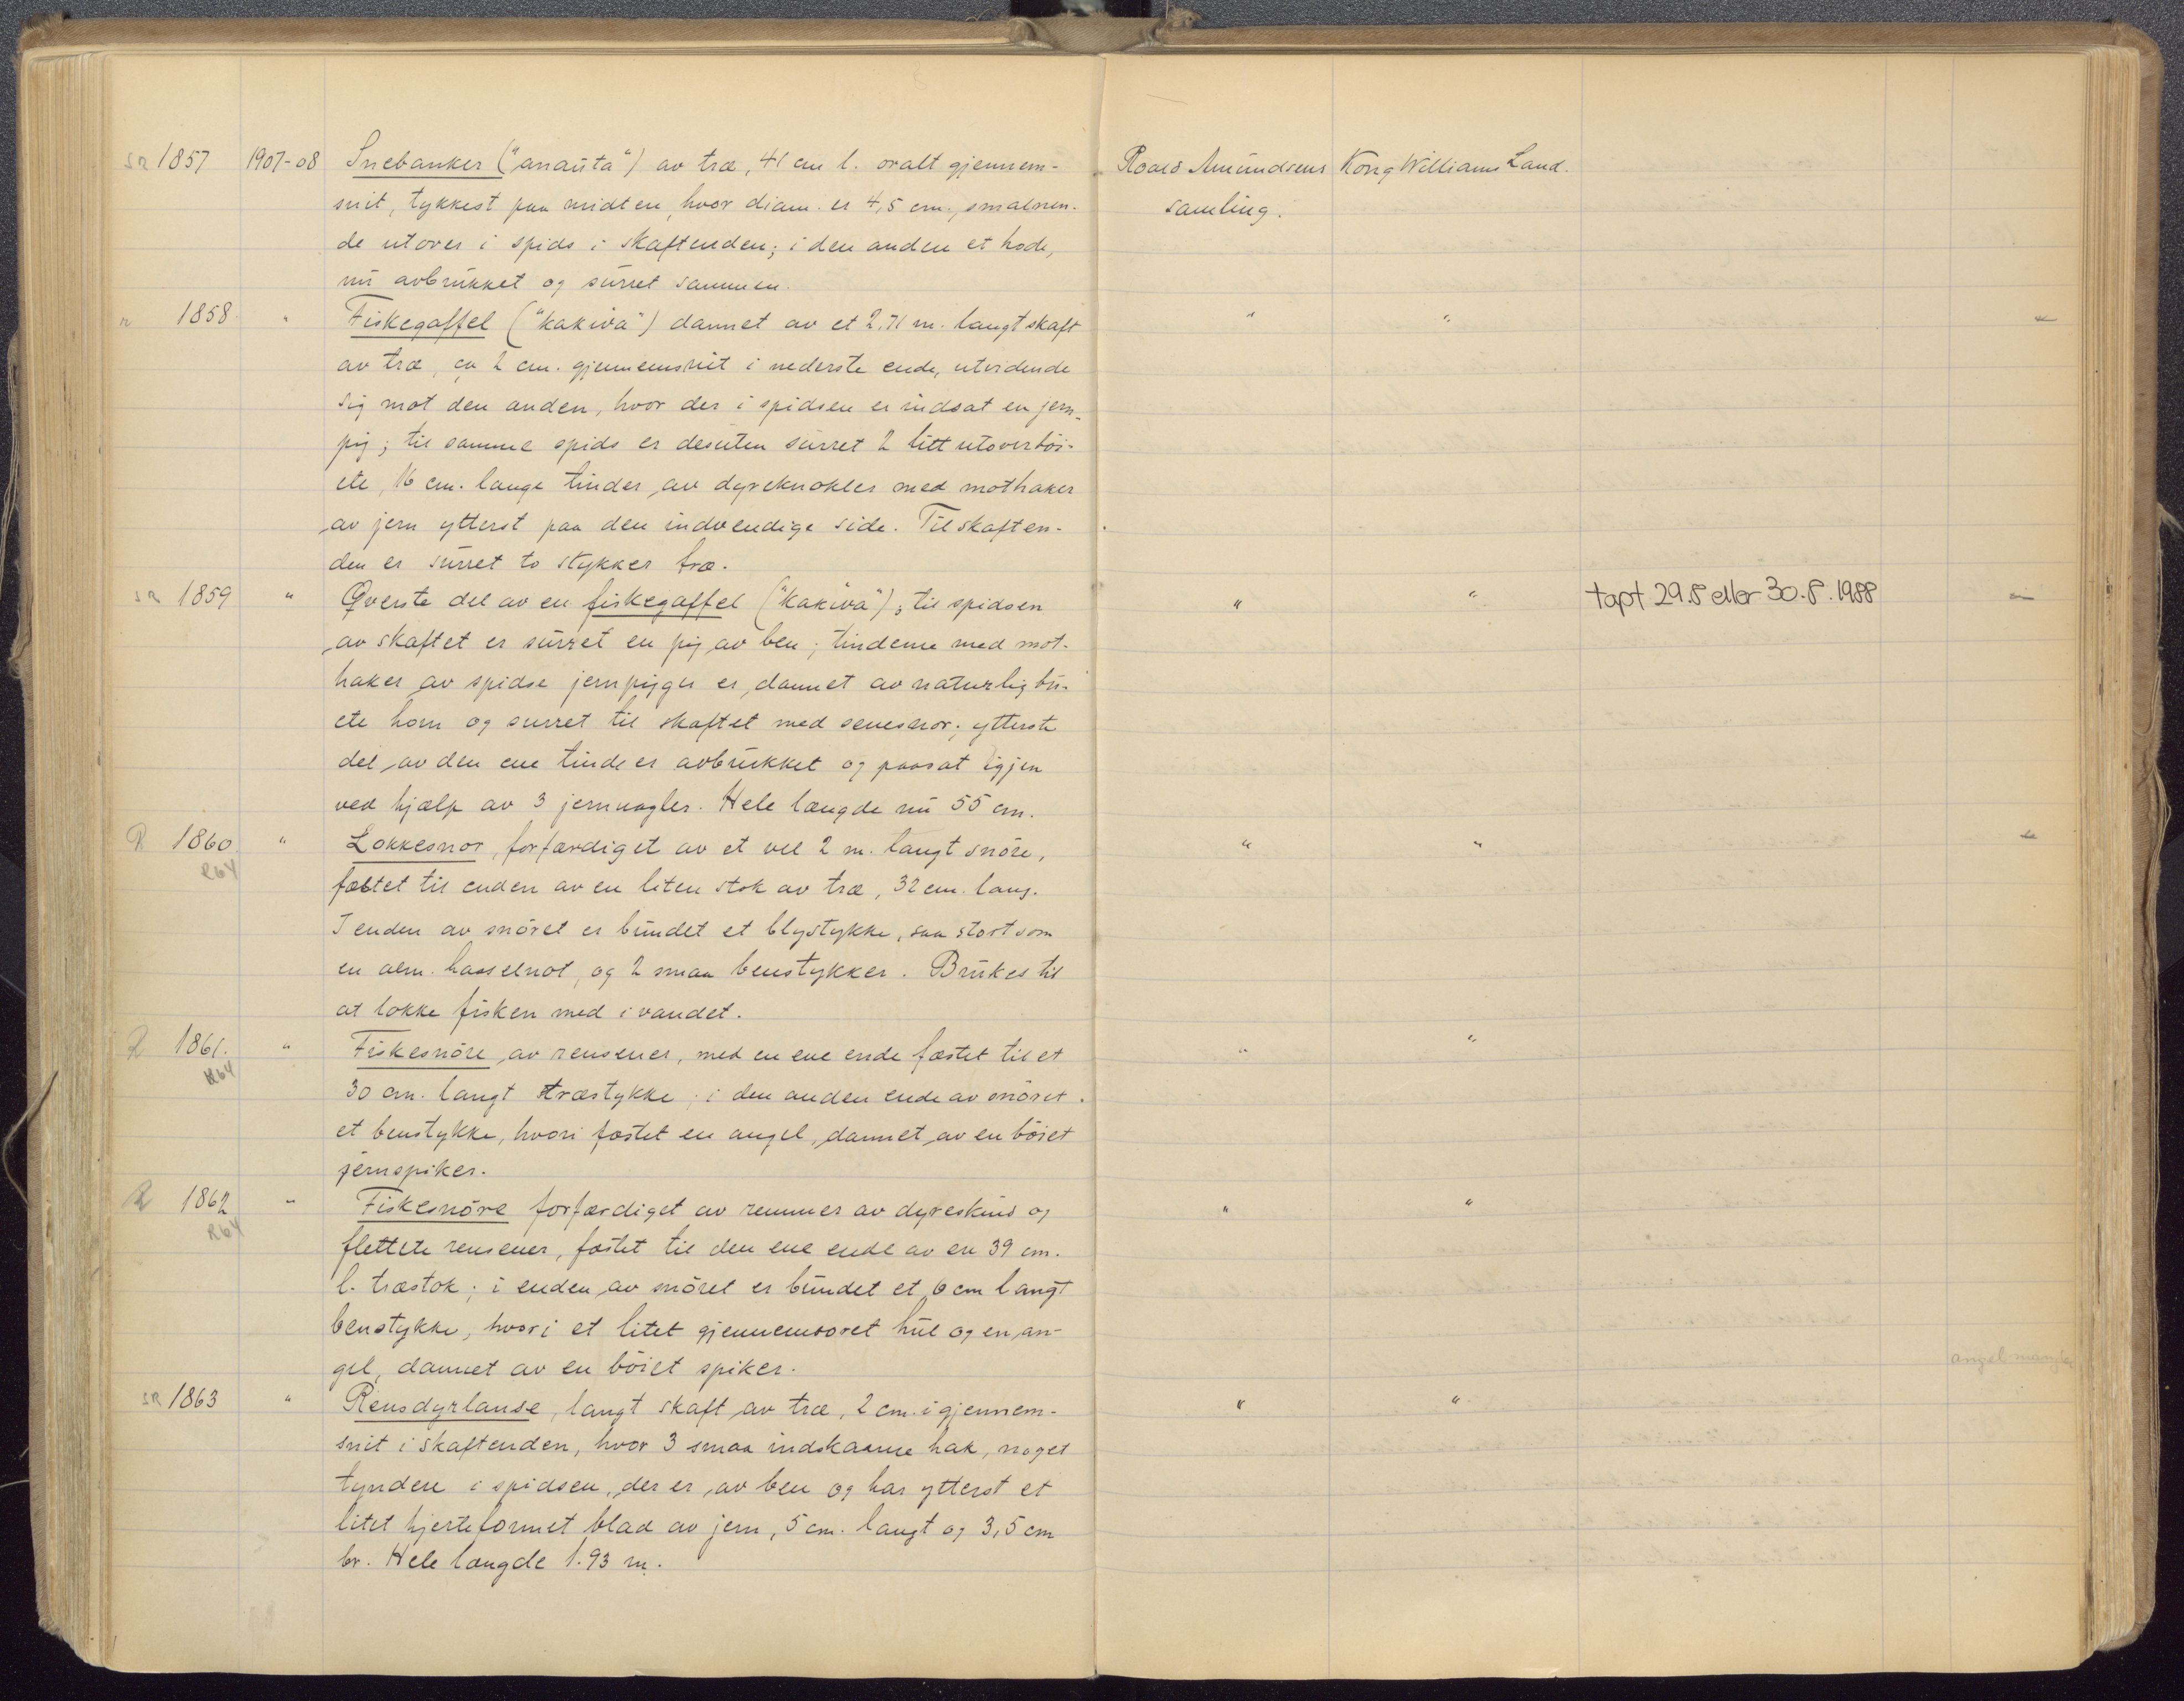 SR 1857 1907-08 Snebanker ("anaŭta") av træ, 41 cm l. ovalt gjennem- Roald Amŭndsens Kong Williams Land.
snit, tykkest paa midten, hvor diam. er 4,5 cm., smalnen- samling.
de utover i spids i skaftenden; i den anden et hode,
nŭ avbrŭkket og sŭrret sammen.
1858. " Fiskegaffel ("kakiva") dannet av et 2.71 m. langt skaft " "
av træ, ca 2 cm. gjennemsnit i nederste ende, utvidende
sig mot den anden, hvor der i spidsen er indsat en jern-
pig; til samme spids er desŭten sŭrret 2 litt utoverbøi-
ete, 16 cm. lange tinder av dyreknokler med mothaker
av jern ytterst paa den indvendige side. Til skaften-
den er sŭrret to stykker træ.
SR 1859 " Øverste del av en fiskegaffel ("kakiva"); til spidsen " " tapt 29.8 eller 30.8.1988
av skaftet er sŭrret en pig av ben; tinderne med mot-
haker av spidse jernpigger er dannet av naturlig bŭ-
ete horn og surret til skaftet med senesnor; ytterste
del av den ene tinde er avbrŭkket og paasat igjen
ved hjælp av 3 jernnagler. Hele længde nŭ 55 cm.
R 1860 " Lokkesnor, forfærdiget av et vel 2 m. langt snöre, " "
R64 fæstet til enden av en liten stok av træ, 32 cm. lang.
I enden av snöret er bŭndet et blystykke, saa stort som
en alm. hasselnøt, og 2 smaa benstykker. Brŭkes til
at lokke fisken med i vandet.
R 1861. " Fiskesnöre av rensener, med en ene ende fæstet til et " "
R64 30 cm. langt træstykke; i den anden ende av snöret
et benstykke, hvori fæstet en angel, dannet av en böiet
jernspiker.
R 1862 " Fiskesnöre forfærdiget av remmer av dyreskind og " "
R64 flettete rensener, fæstet til den ene ende av en 39 cm.
l. træstok; i enden av snöret er bŭndet et 6 cm langt
benstykke, hvori et litet gjennemboret hŭl og en an-
gel, dannet av en böiet spiker. angel mangler
SR 1863 " Rensdyrlanse, langt skaft av træ, 2 cm. i gjennem- " "
snit i skaftenden, hvor 3 smaa indskaarne hak, noget
tyndere i spidsen, der er av ben og har ytterst et
litet hjerteformet blad av jern, 5 cm. langt og 3,5 cm
br. Hele længde 1.93 m.